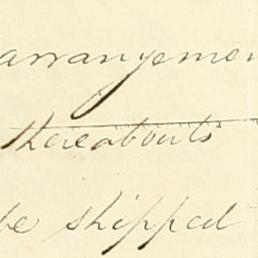 arrangemen
thereabouts
be shipped